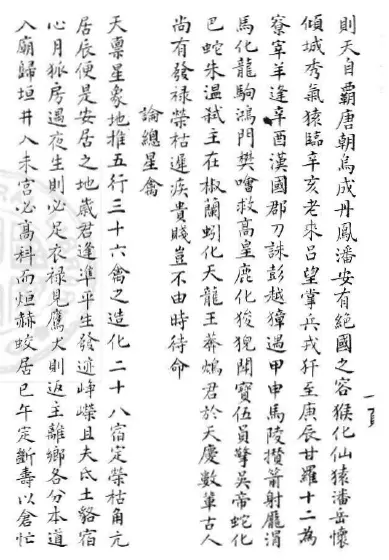 則天自霸唐朝烏成丹鳳潘安有絕國之容猴化仙猿潘岳懷
傾城秀氣猿臨辛亥老來呂望掌兵戎犴至庚辰甘羅十二為
寮宰羊逢辛酉漢國郡刀誅彭越獐遇甲申馬陵攢箭射龐涓
馬化龍駒鴻門樊噲救高皇鹿化狻猊鬪寶伍員擎吳帝蛇化
巴蛇朱溫弒主在椒蘭蚓化天龍王莽鴆君於天慶數輩古人
尚有發祿榮枯遲疾貴賤豈不由時待命
論總星禽
天禀星象地推五行三十六禽之造化二十八宿定榮枯角亢
居辰便是安居之地歲君逢準平生發迹崢嶸且夫氐土貉宿
心月狐房遇夜生則必足衣祿見鷹犬則返主離鄉各分本道
入廟歸垣井入未宮必高科而烜赫蛟居巳午定斷壽以倉忙
一頁